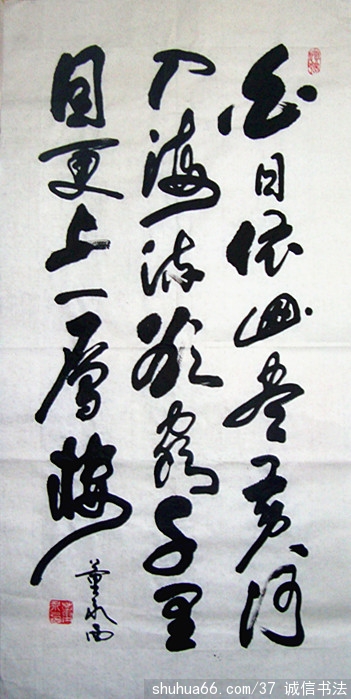 白日依山尽黄河
入海流欲穷千里
目更上一层楼
shuhua66.com/37 诚信书法